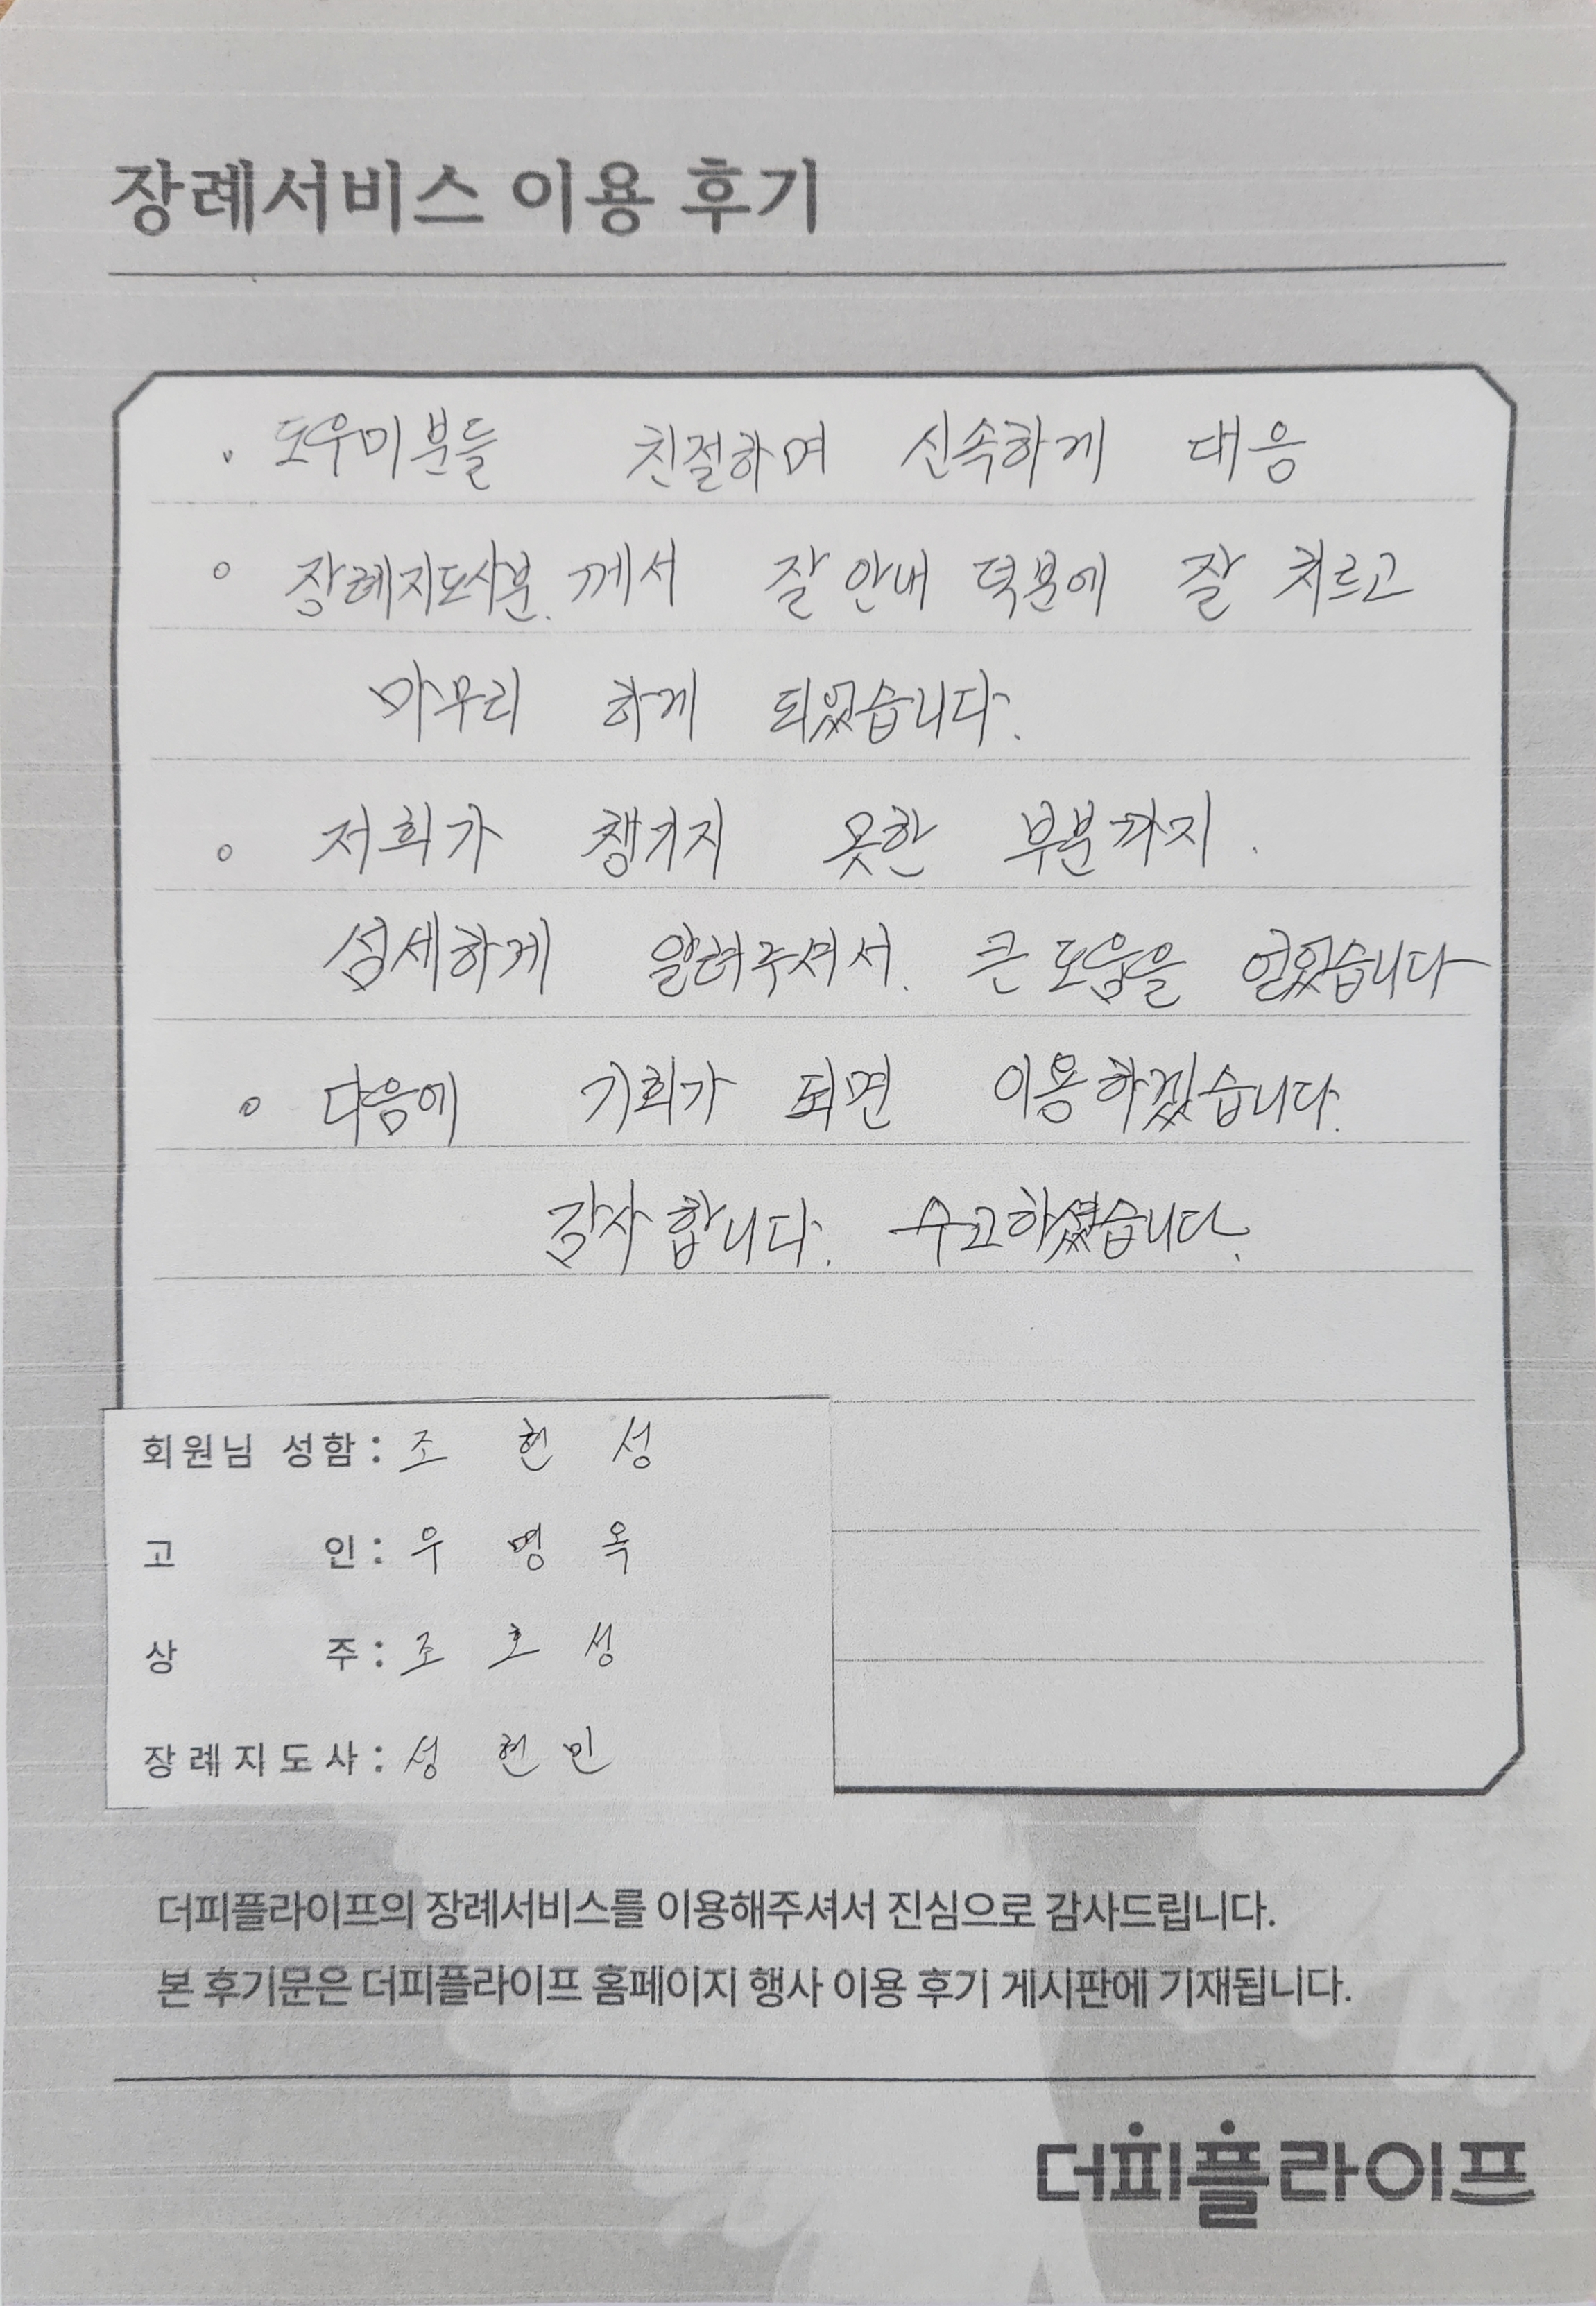 장례서비스 이용 후기
. 도우미분들 친절하며 신속하게 대응
o 장례지도사분.께서 잘 안내 덕분에 잘 치르고
마무리 하게 되었습니다.
o 저희가 챙기지 못한 부분까지.
섬세하게 알려주셔서. 큰 도움을 얻었습니다
o 다음에 기회가 되면 이용하겠습니다.
감사합니다. 수고하셨습니다.
회원님 성함 : 조 헌 성
고 인 : 우 명 옥
상 주 : 조 호 성
장례지도사 : 성 현 민
더피플라이프의 장례서비스를 이용해주셔서 진심으로 감사드립니다.
본 후기문은 더피플라이프 홈페이지 행사 이용 후기 게시판에 기재됩니다.
더피플라이프